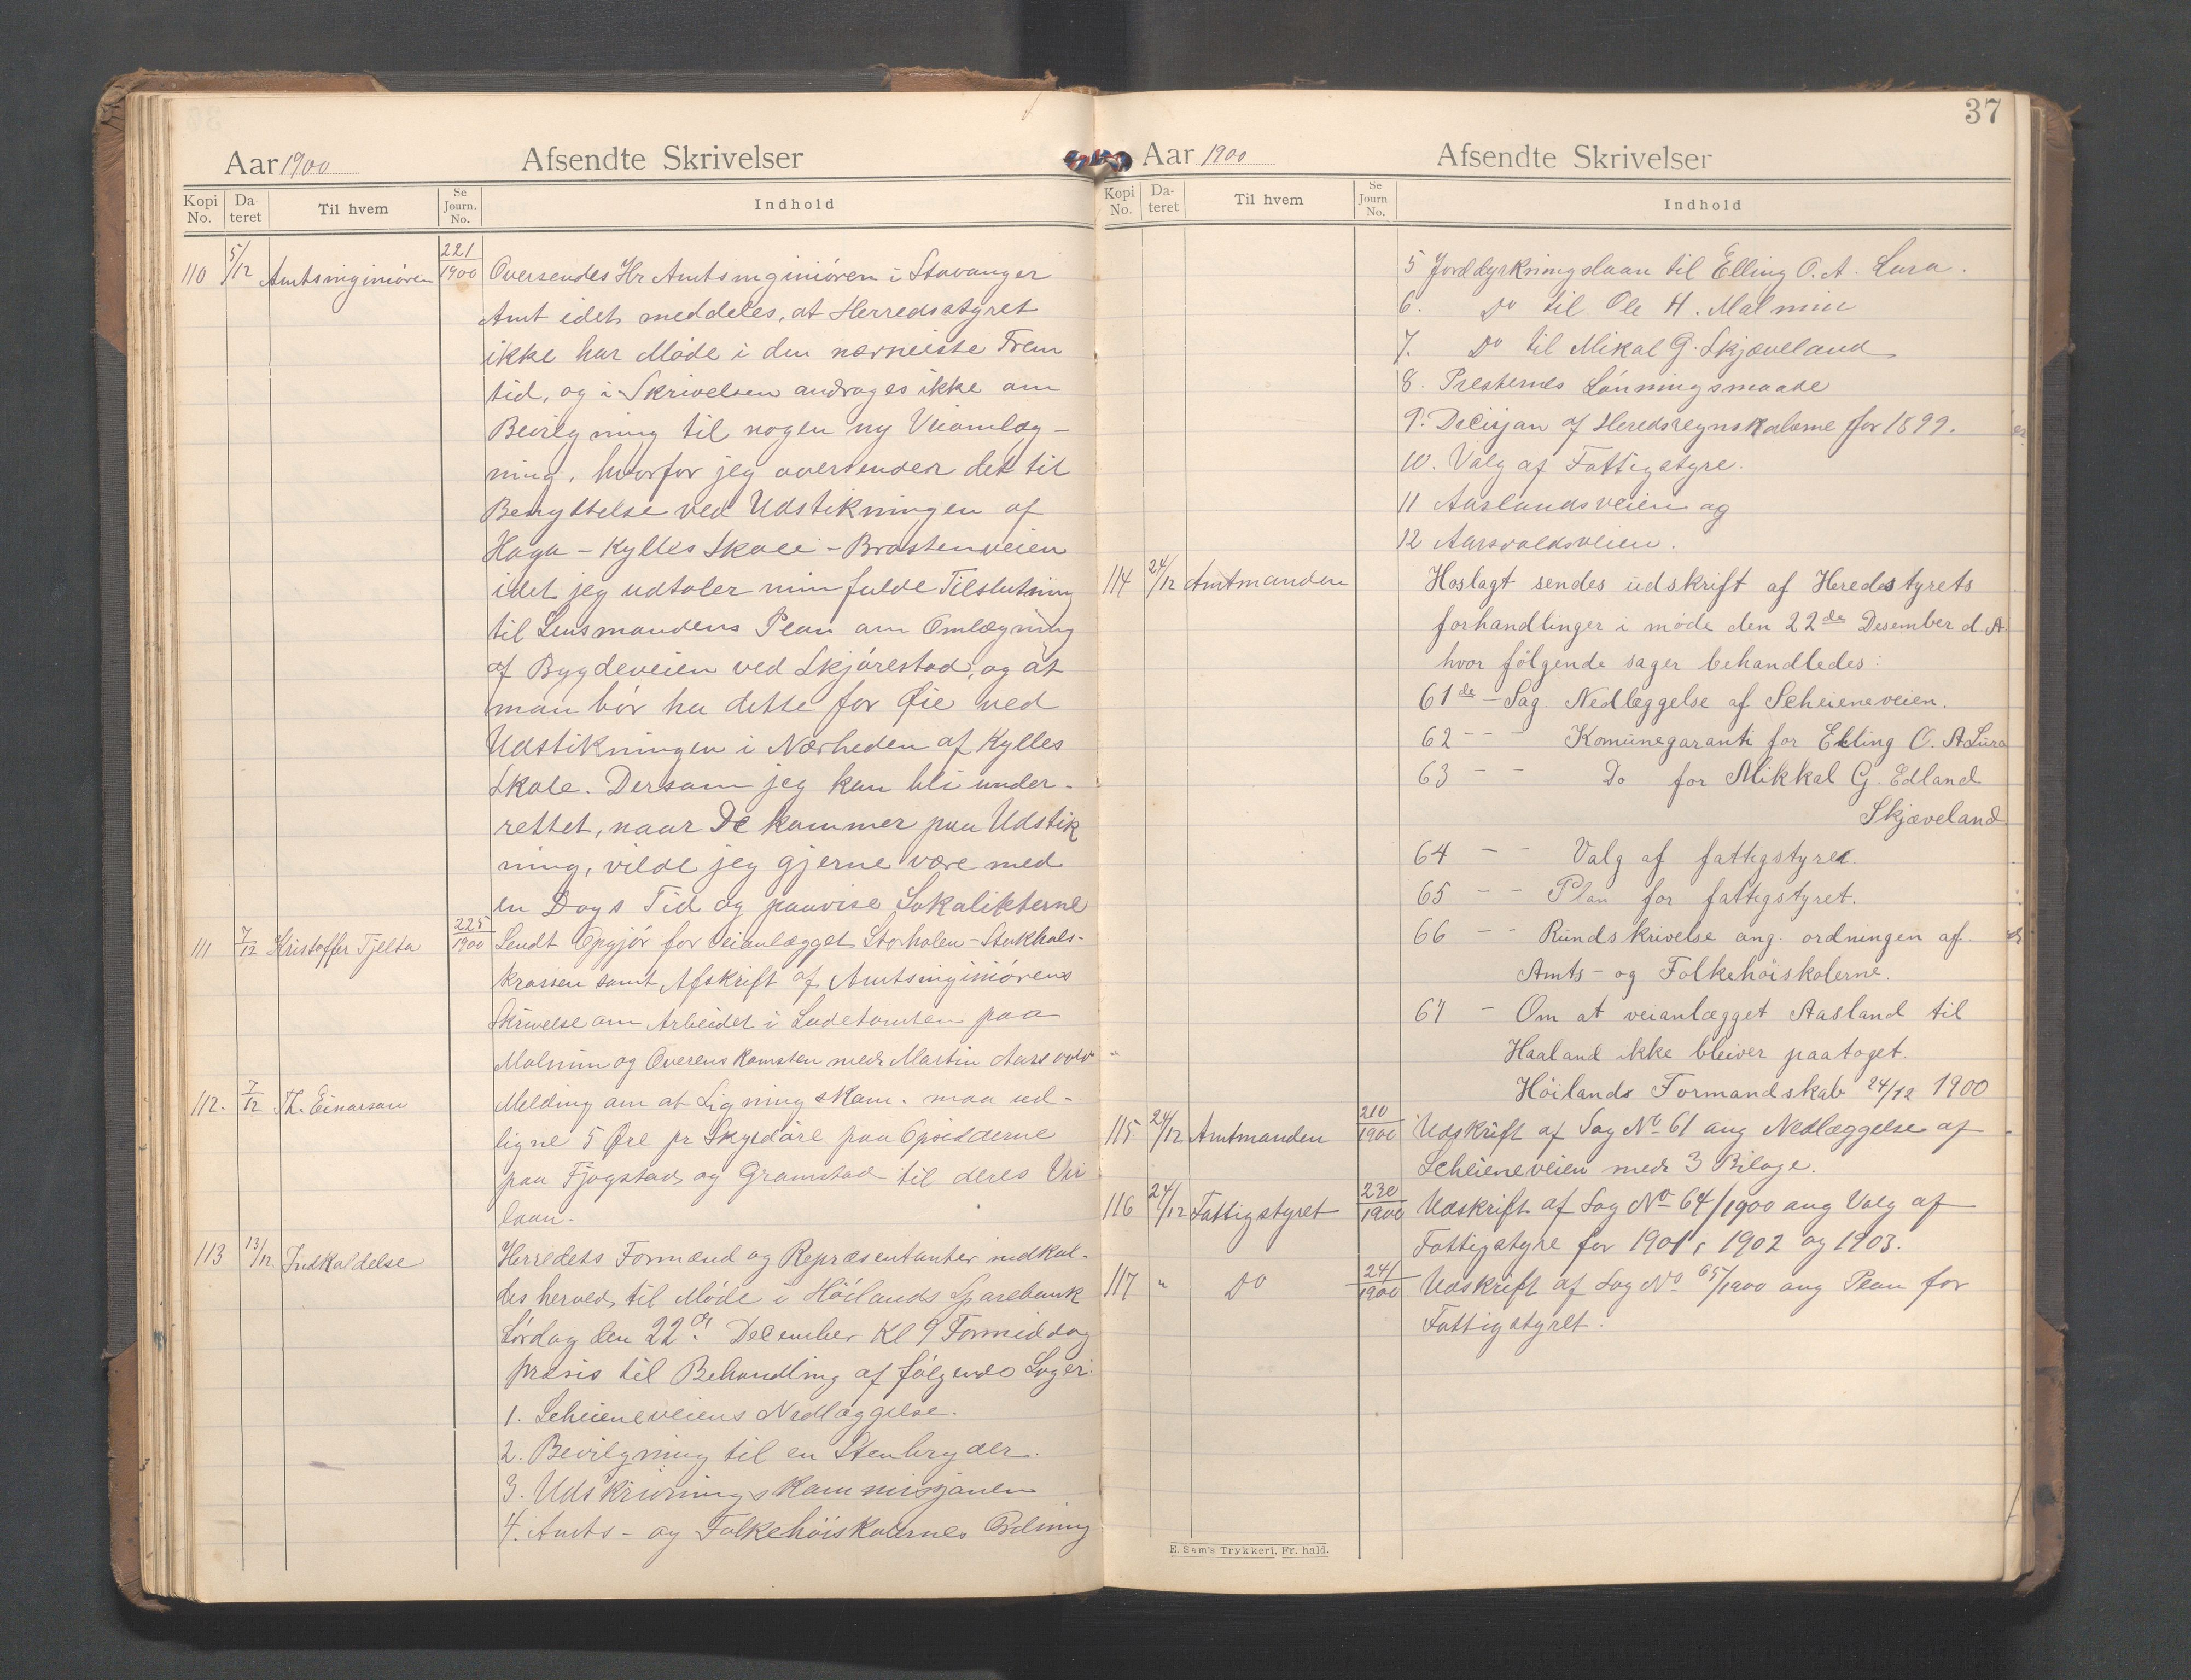 Aar 1900 Afsendte Skrivelser
Kopi No. Da-teret Til hvem Se Journ. No. Indhold
110 5/12 Amtsingeniøren 221/1900 Oversendes Hr Amtsingeniøren i Stavanger
Amt idet meddeles, at Herredsstyret
ikke har Møde i den nærmeste Frem
tid, og i Skrivelsen andrages ikke om
Bevilgning til nogen ny Veiomlæg-
ning, hvorfor jeg oversender det til
Benyttelse ved Udstikningen af
Haga - Kylles Skole - Brastenveien
idet jeg udtaler min fulde Tilslutning
til Lensmandens Plan om Omlægning
af Bygdeveien ved Skjørestad, og at
man bør ha dette for Øie ved
Udstikningen i Nærheden af Kylles
Skole. Dersom jeg kan bli under-
rettet, naar De kommer paa Udstik
ning, vilde jeg gjerne være med
en Dags Tid og paavise Lokaliteterne
111 7/12 Kristoffer Tjelta 225/1900 Sendt Opgjør for Veianlægget Storholen - Stokhols-
krossen samt Afskrift af Amtsingeniørens
Skrivelse om Arbeidet i Ladetomten paa
Malmin og Overenskomsten med Martin Aarsvold
112. 7/12 Th. Einarsen Melding om at Ligningskom. maa ud-
ligne 5 Øre pr Skyldøre paa Opsidderne
paa Fjogstad og Gramstad til deres Vei
laan.
113 13/12 Indkaldelse Herredets Formænd og Repræsentanter indkal-
des herved til Møde i Höilands Sparebank
Lørdag den 22de December Kl 9 Formiddag
præsis til Behandling af følgende Sager:
1. Scheieneveiens Nedlæggelse.
2. Bevilgning til en Stenbryder.
3. Udskrivningskommissjonen
4. Amts- og Folkehøiskolernes Ordning
37
Aar 1900 Afsendte Skrivelser
Kopi No. Da-teret Til hvem Se Journ No. Indhold
5 Jorddyrkningslaan til Elling O. A. Lura.
6. Do til Ole H. Malmin
7. Do til Mikal G. Skjæveland
8. Presternes Lønningsmaade
9. Decisjon af Heredsregnskaberne for 1899.
10. Valg af Fattigstyre.
11 Aaslandsveien og
12 Aarsvoldsveien.
114 24/12 Amtmanden Hoslagt sendes udskrift af Heredsstyrets
forhandlinger i møde den 22de Desember d. A.
hvor følgende sager behandledes:
61de - Sag. Nedlæggelse af Scheieneveien.
62 - - Komunegaranti for Elling O. A Lura
63 - - Do for Mikkal G. Edland
Skjæveland
64 - - Valg af fattigstyret.
65 - - Plan for fattigstyret.
66 - - Rundskrivelse ang. ordningen af
Amts- og Folkehöiskolerne.
67 - Om at veianlægget Aasland til
Haaland ikke bleiver paataget.
Höilands Formandskab 24/12 1900
115 24/12 Amtmanden 210/1900 Udskrift af Sag No 61 ang Nedlæggelse af
Scheieneveien med 3 Bilage.
116 24/12 Fattigstyret 230/1900 Udskrift af Sag No 64/1900 ang Valg af
Fattigstyre for 1901, 1902 og 1903.
117 " Do 241/1900 Udskrift af Sag No 65/1900 ang Plan for
Fattigstyret.
E. Sem's Trykkeri, Fr. hald.